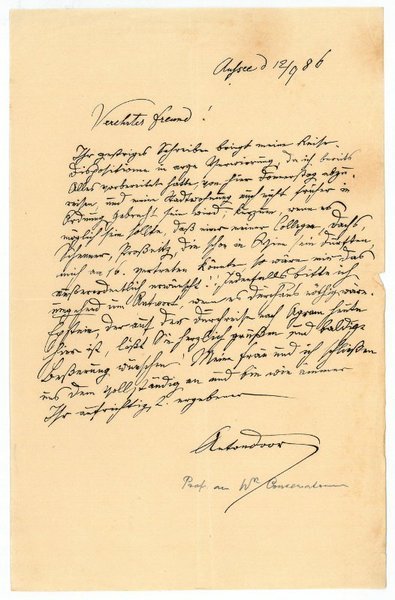 Aussee d 12/9 86
Verehrter Freund!
Ihr gestriges Schreiben bringt meine Reise-
dispositionen in arge Verwirrung, da ich bereits
Alles vorbereitet hatte, von hier Donnerstag abzu-
reisen, und meine Stadtwohnung auch nicht früher in
Ordnung gebracht sein wird; wenn es
möglich sein sollte, daß einer meiner Collegen, Dachs,
Schenner, Prosnitz, die schon in Wien sein dürften
mich am 16. vertreten könnte so wäre mir das
außerordentlich erwünscht; jedenfalls bitte ich
umgehend um Antwort, wenn es durchaus nöthig wäre.
Epstein, der auf der Durchreise nach Agram heute
hier ist, läßt Sie herzlich grüßen und baldige
Beßerung wünschen. Meine Frau und ich schließen
uns dem vollständig an und bin wie immer
Ihr aufrichtig ergebener
Antondoor
Prof. am Wr Conservatorium